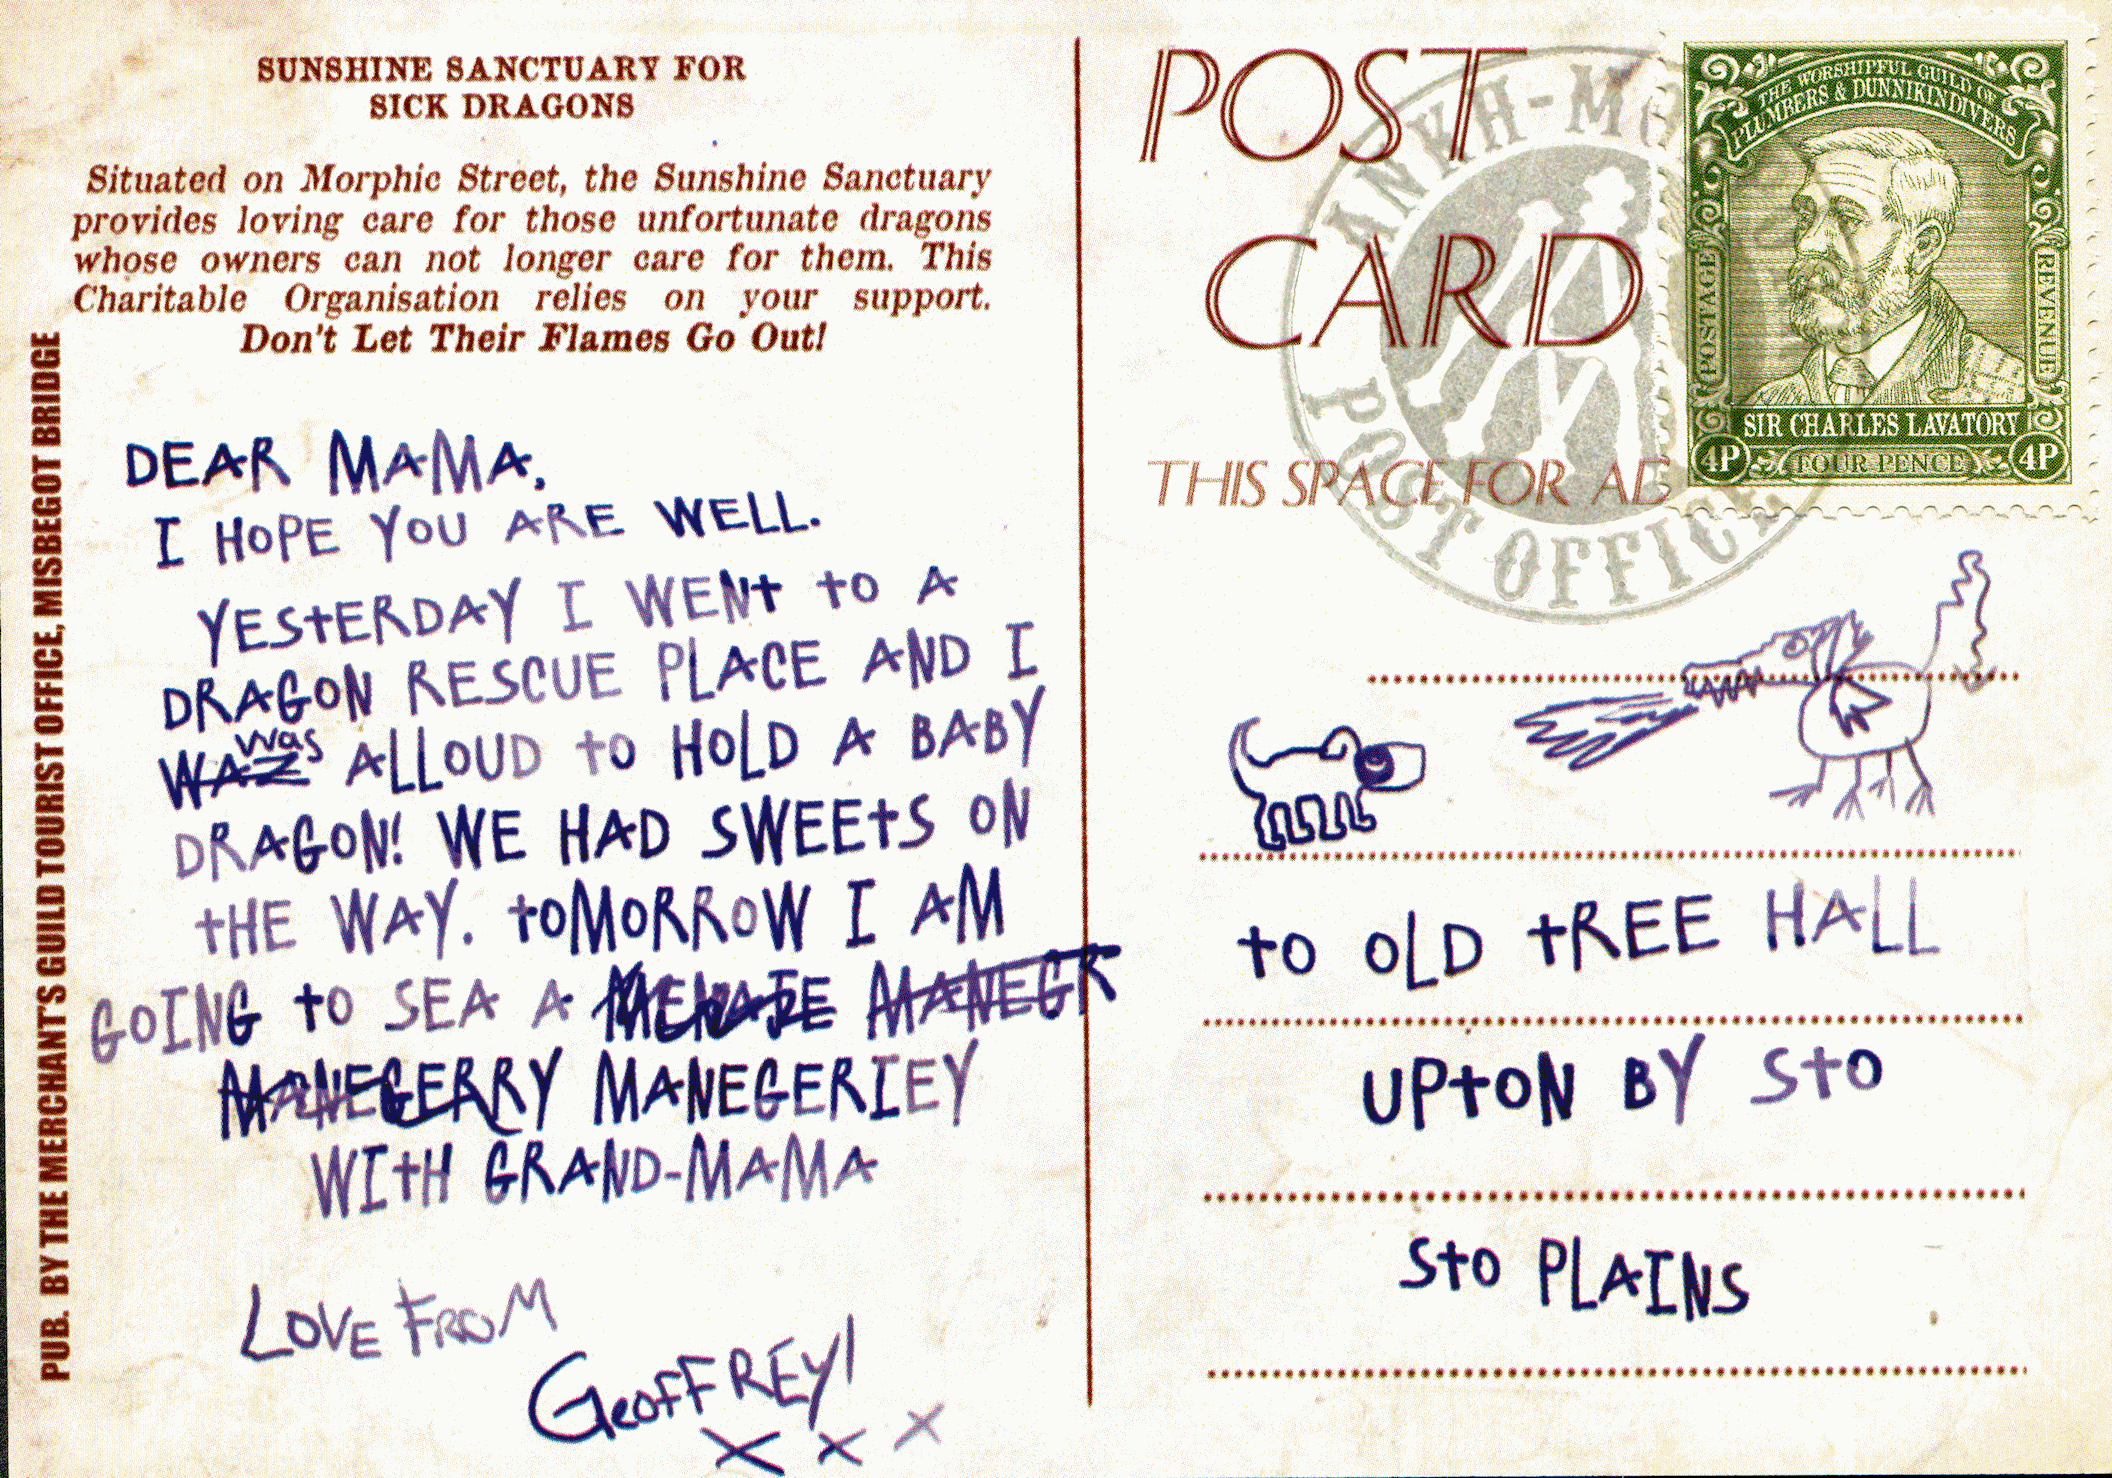 SUNSHINE SANCTUARY FOR
SICK DRAGONS
Situated on Morphic Street, the Sunshine Sanctuary
provides loving care for those unfortunate dragons
whose owners can not longer care for them. This
Charitable Organisation relies on your support.
Don't Let Their Flames Go Out!
PUB. BY THE MERCHANT'S GUILD TOURIST OFFICE, MISBEGOT BRIDGE
DEAR MAMA,
I HOPE YOU ARE WELL.
YEStERDAY I WENt tO A
DRAGON RESCUE PLACE AND I
WAZ was ALLOUD tO HOLD A BABY
DRAGON! WE HAD SWEEtS ON
tHE WAY. tOMORROW I AM
GOING tO SEA A MANEGR
MANEGERRY MANEGERIEY
WItH GRAND-MAMA
LOVE FROM
GEOFFREY!
X X X
POST
CARD
THIS SPACE FOR AD
ANKH-MO
POST OFFICE
THE WORSHIPFUL GUILD OF
PLUMBERS & DUNNIKINDIVERS
POSTAGE
REVENUE
SIR CHARLES LAVATORY
4P FOUR PENCE 4P
tO OLD tREE HALL
UPtON BY StO
StO PLAINS